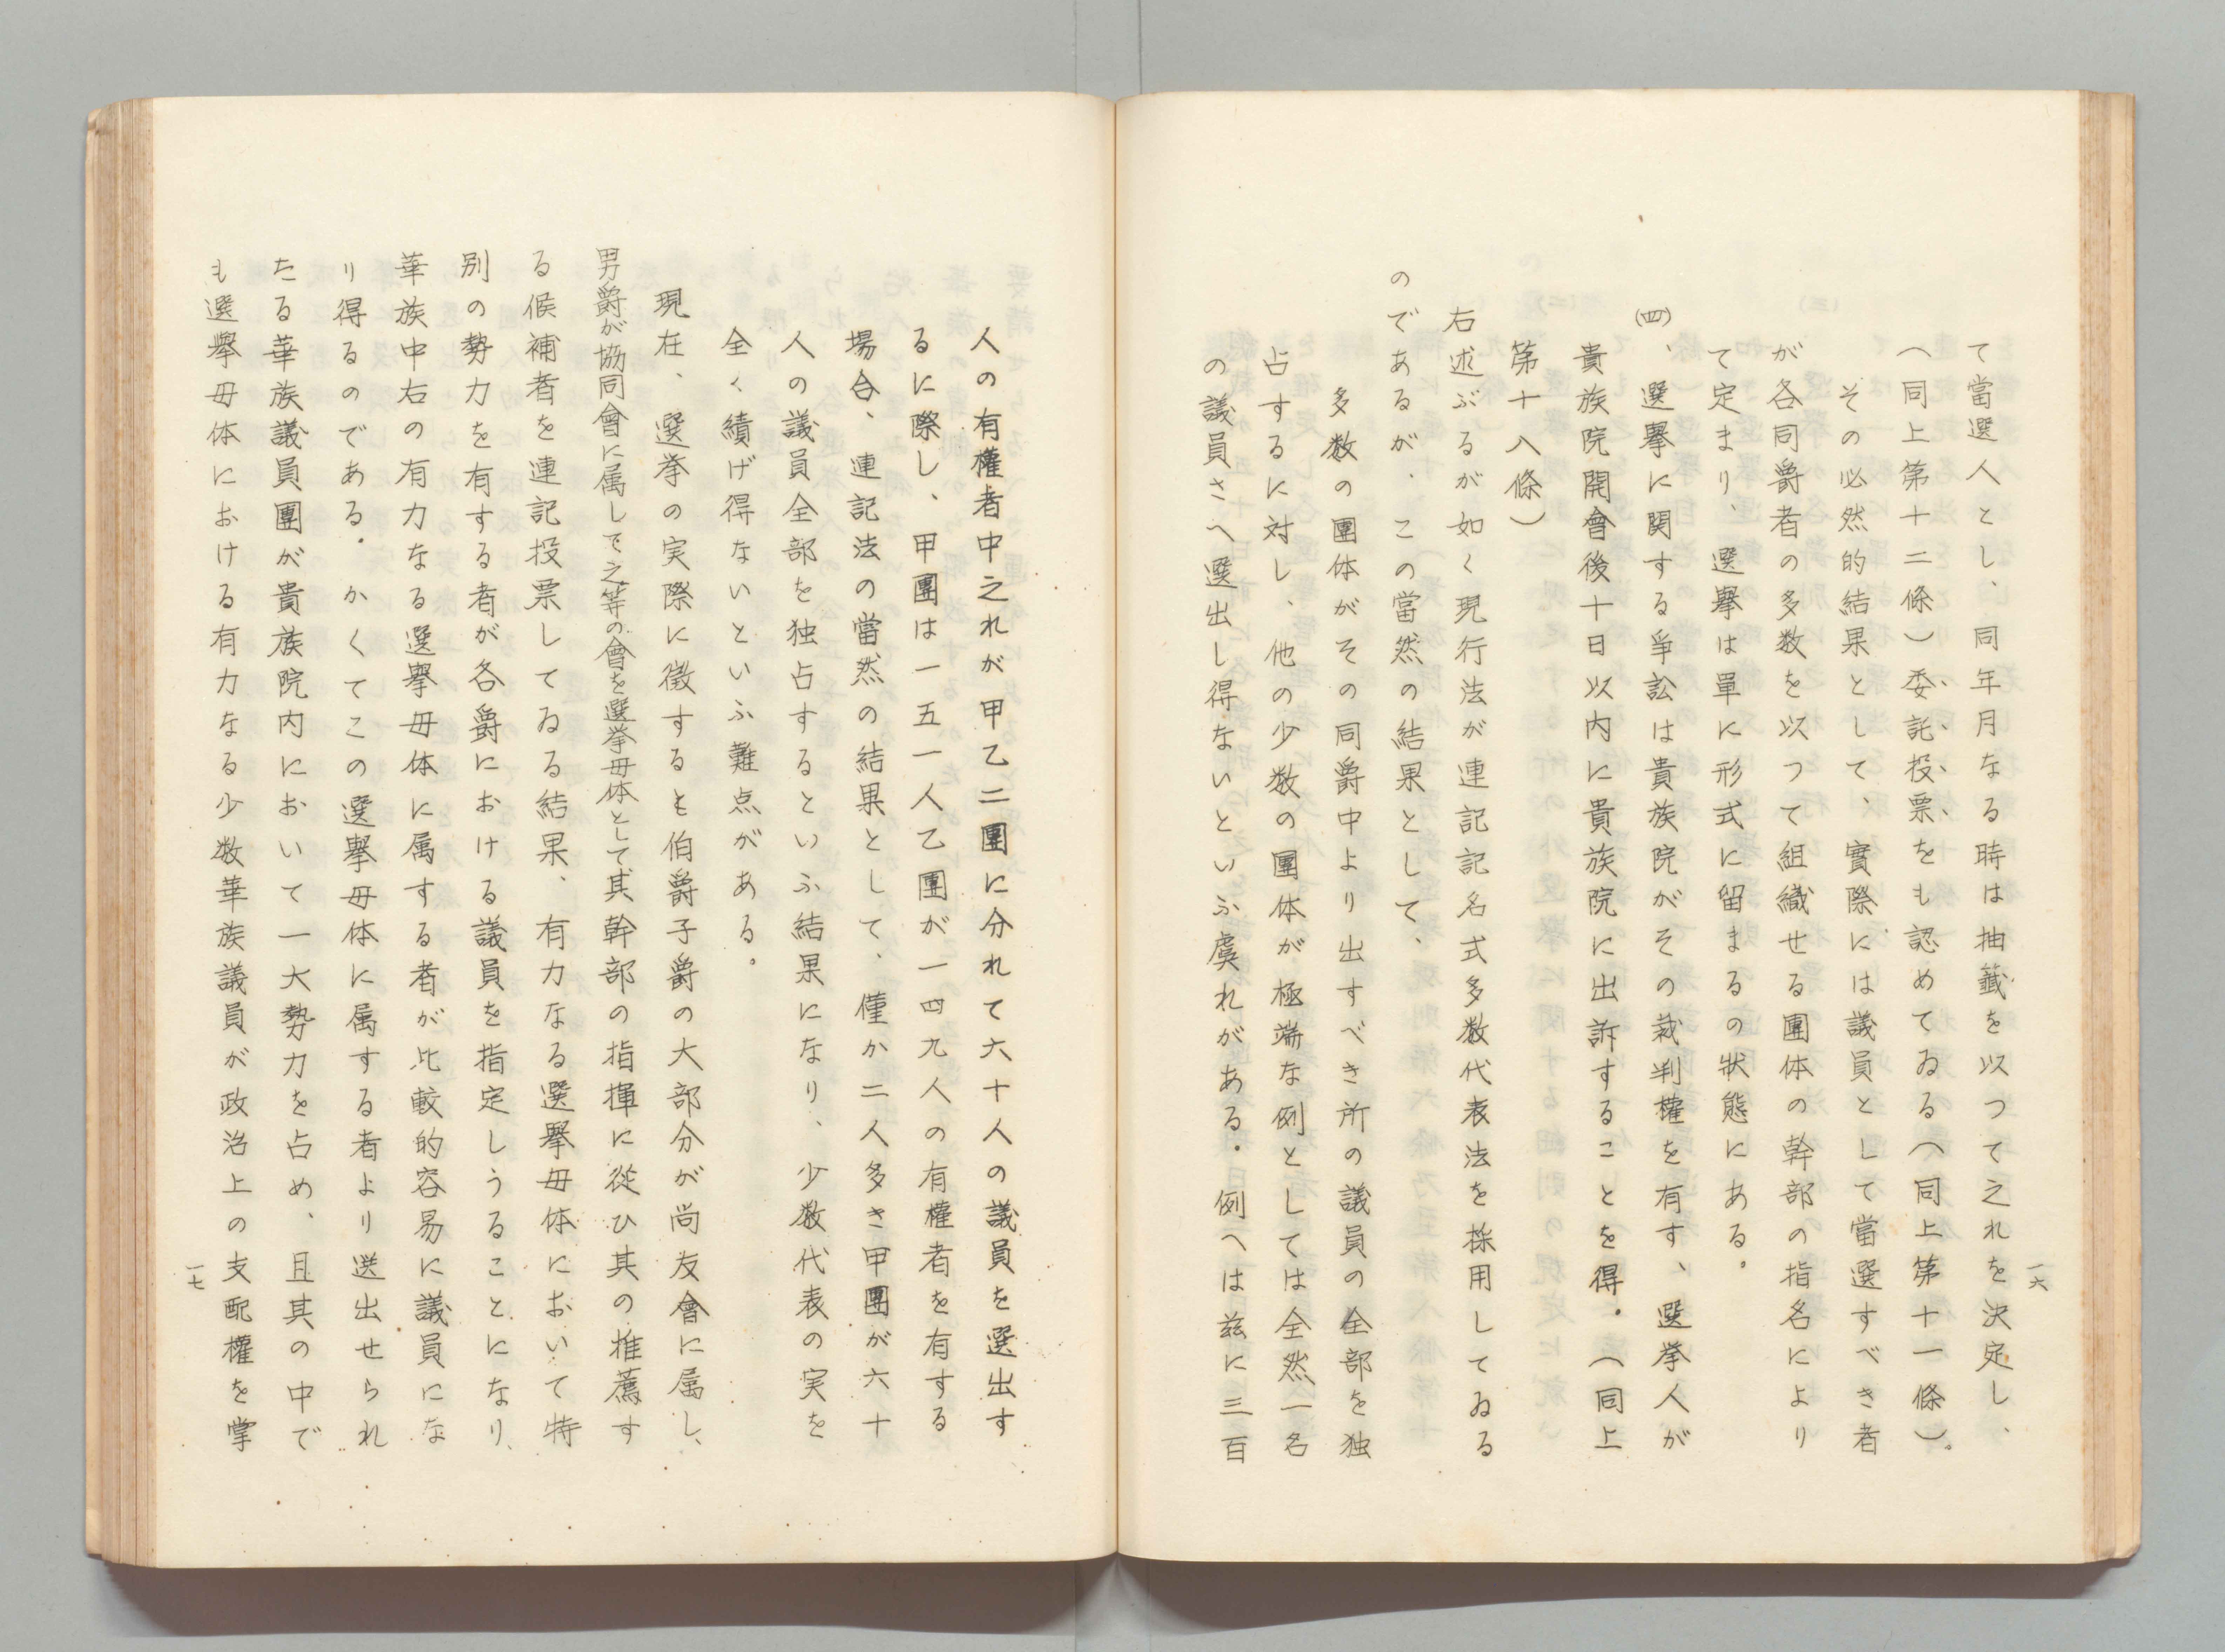 て當選人とし、同年月なる時は抽籤を以つて之れを決定し、
（同上第十二條）委託投票をも認めてゐる（同上第十一條）。
その必然的結果として、實際には議員として當選すべき者
が各同爵者の多数を以つて組織せる團体の幹部の指名により
て定まり、選擧は單に形式に留まるの狀態にある。
㈣、選擧に関する爭訟は貴族院がその裁判權を有す、選挙人が
貴族院開會後十日以内に貴族院に出訴することを得。（同上
第十八條）
右述ぶるが如く現行法が連記記名式多数代表法を採用してゐる
のであるが、この當然の結果として、
多数の團体がその同爵中より出すべき所の議員の全部を独
占するに対し、他の少数の團体が極端な例としては全然一名
の議員さへ選出し得ないといふ虞れがある。例へは茲に三百
一六
人の有權者中之れが甲乙二團に分れて六十人の議員を選出す
るに際し、甲團は一五一人乙團が一四九人の有權者を有する
場合、連記法の當然の結果として、僅か二人多き甲團が六十
人の議員全部を独占するといふ結果になり、少数代表の実を
全く績げ得ないといふ難点がある。
現在、選挙の実際に徴するも伯爵子爵の大部分が尚友會に属し、
男爵が協同會に属して之等の會を選挙母体として其幹部の指揮に從ひ其の推薦す
る候補者を連記投票してゐる結果、有力なる選擧母体において特
別の勢力を有する者が各爵における議員を指定しうることになり、
華族中右の有力なる選擧母体に属する者が比較的容易に議員にな
り得るのである。かくてこの選擧母体に属する者より送出せられ
たる華族議員團が貴族院内において一大勢力を占め、且其の中で
も選擧母体における有力なる少数華族議員が政治上の支配權を掌
一七